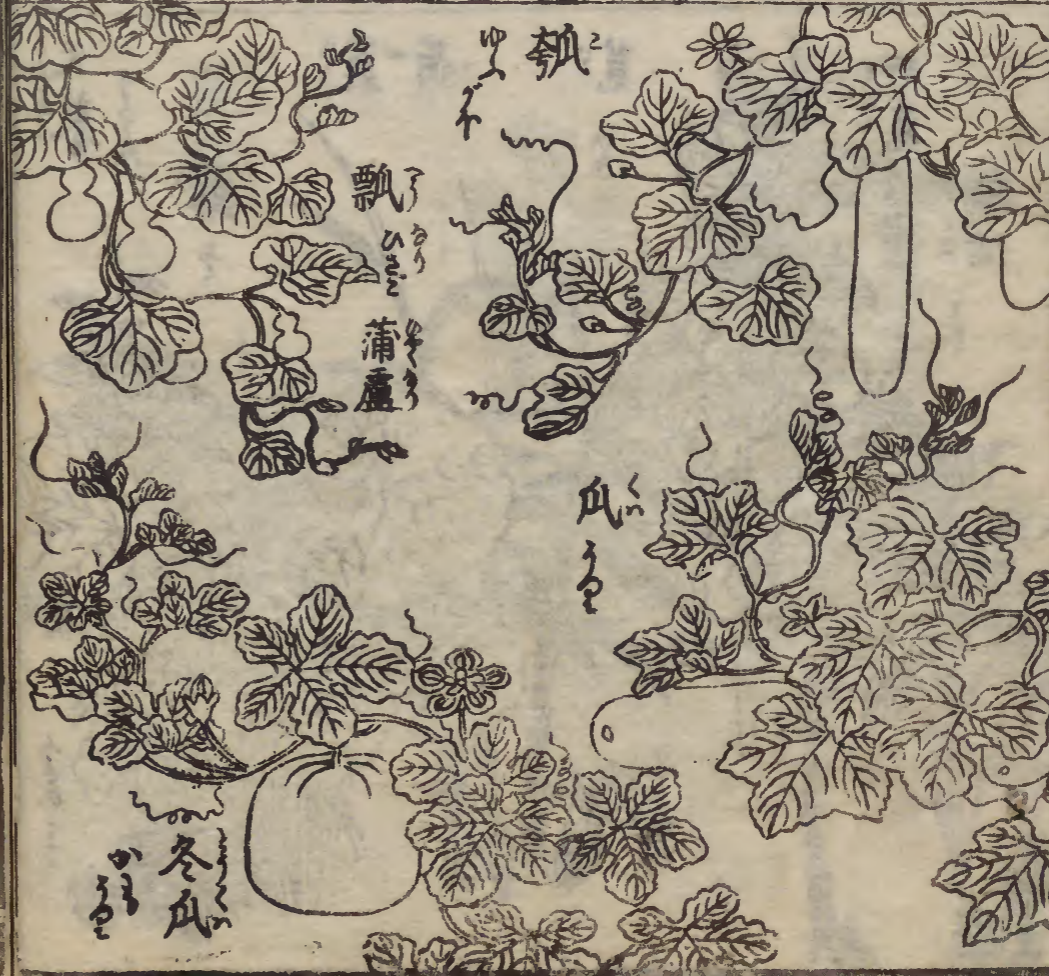 瓠 こ
ゆふがほ
瓢 へう
なりひさご
蒲盧
瓜 くハ
うり
冬瓜 とうくハ
かもうり